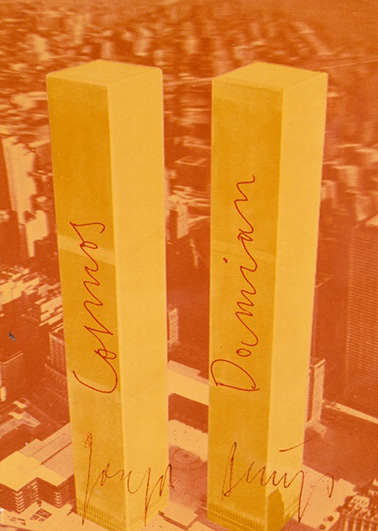 Cosmos
Damian
Joseph Beuys